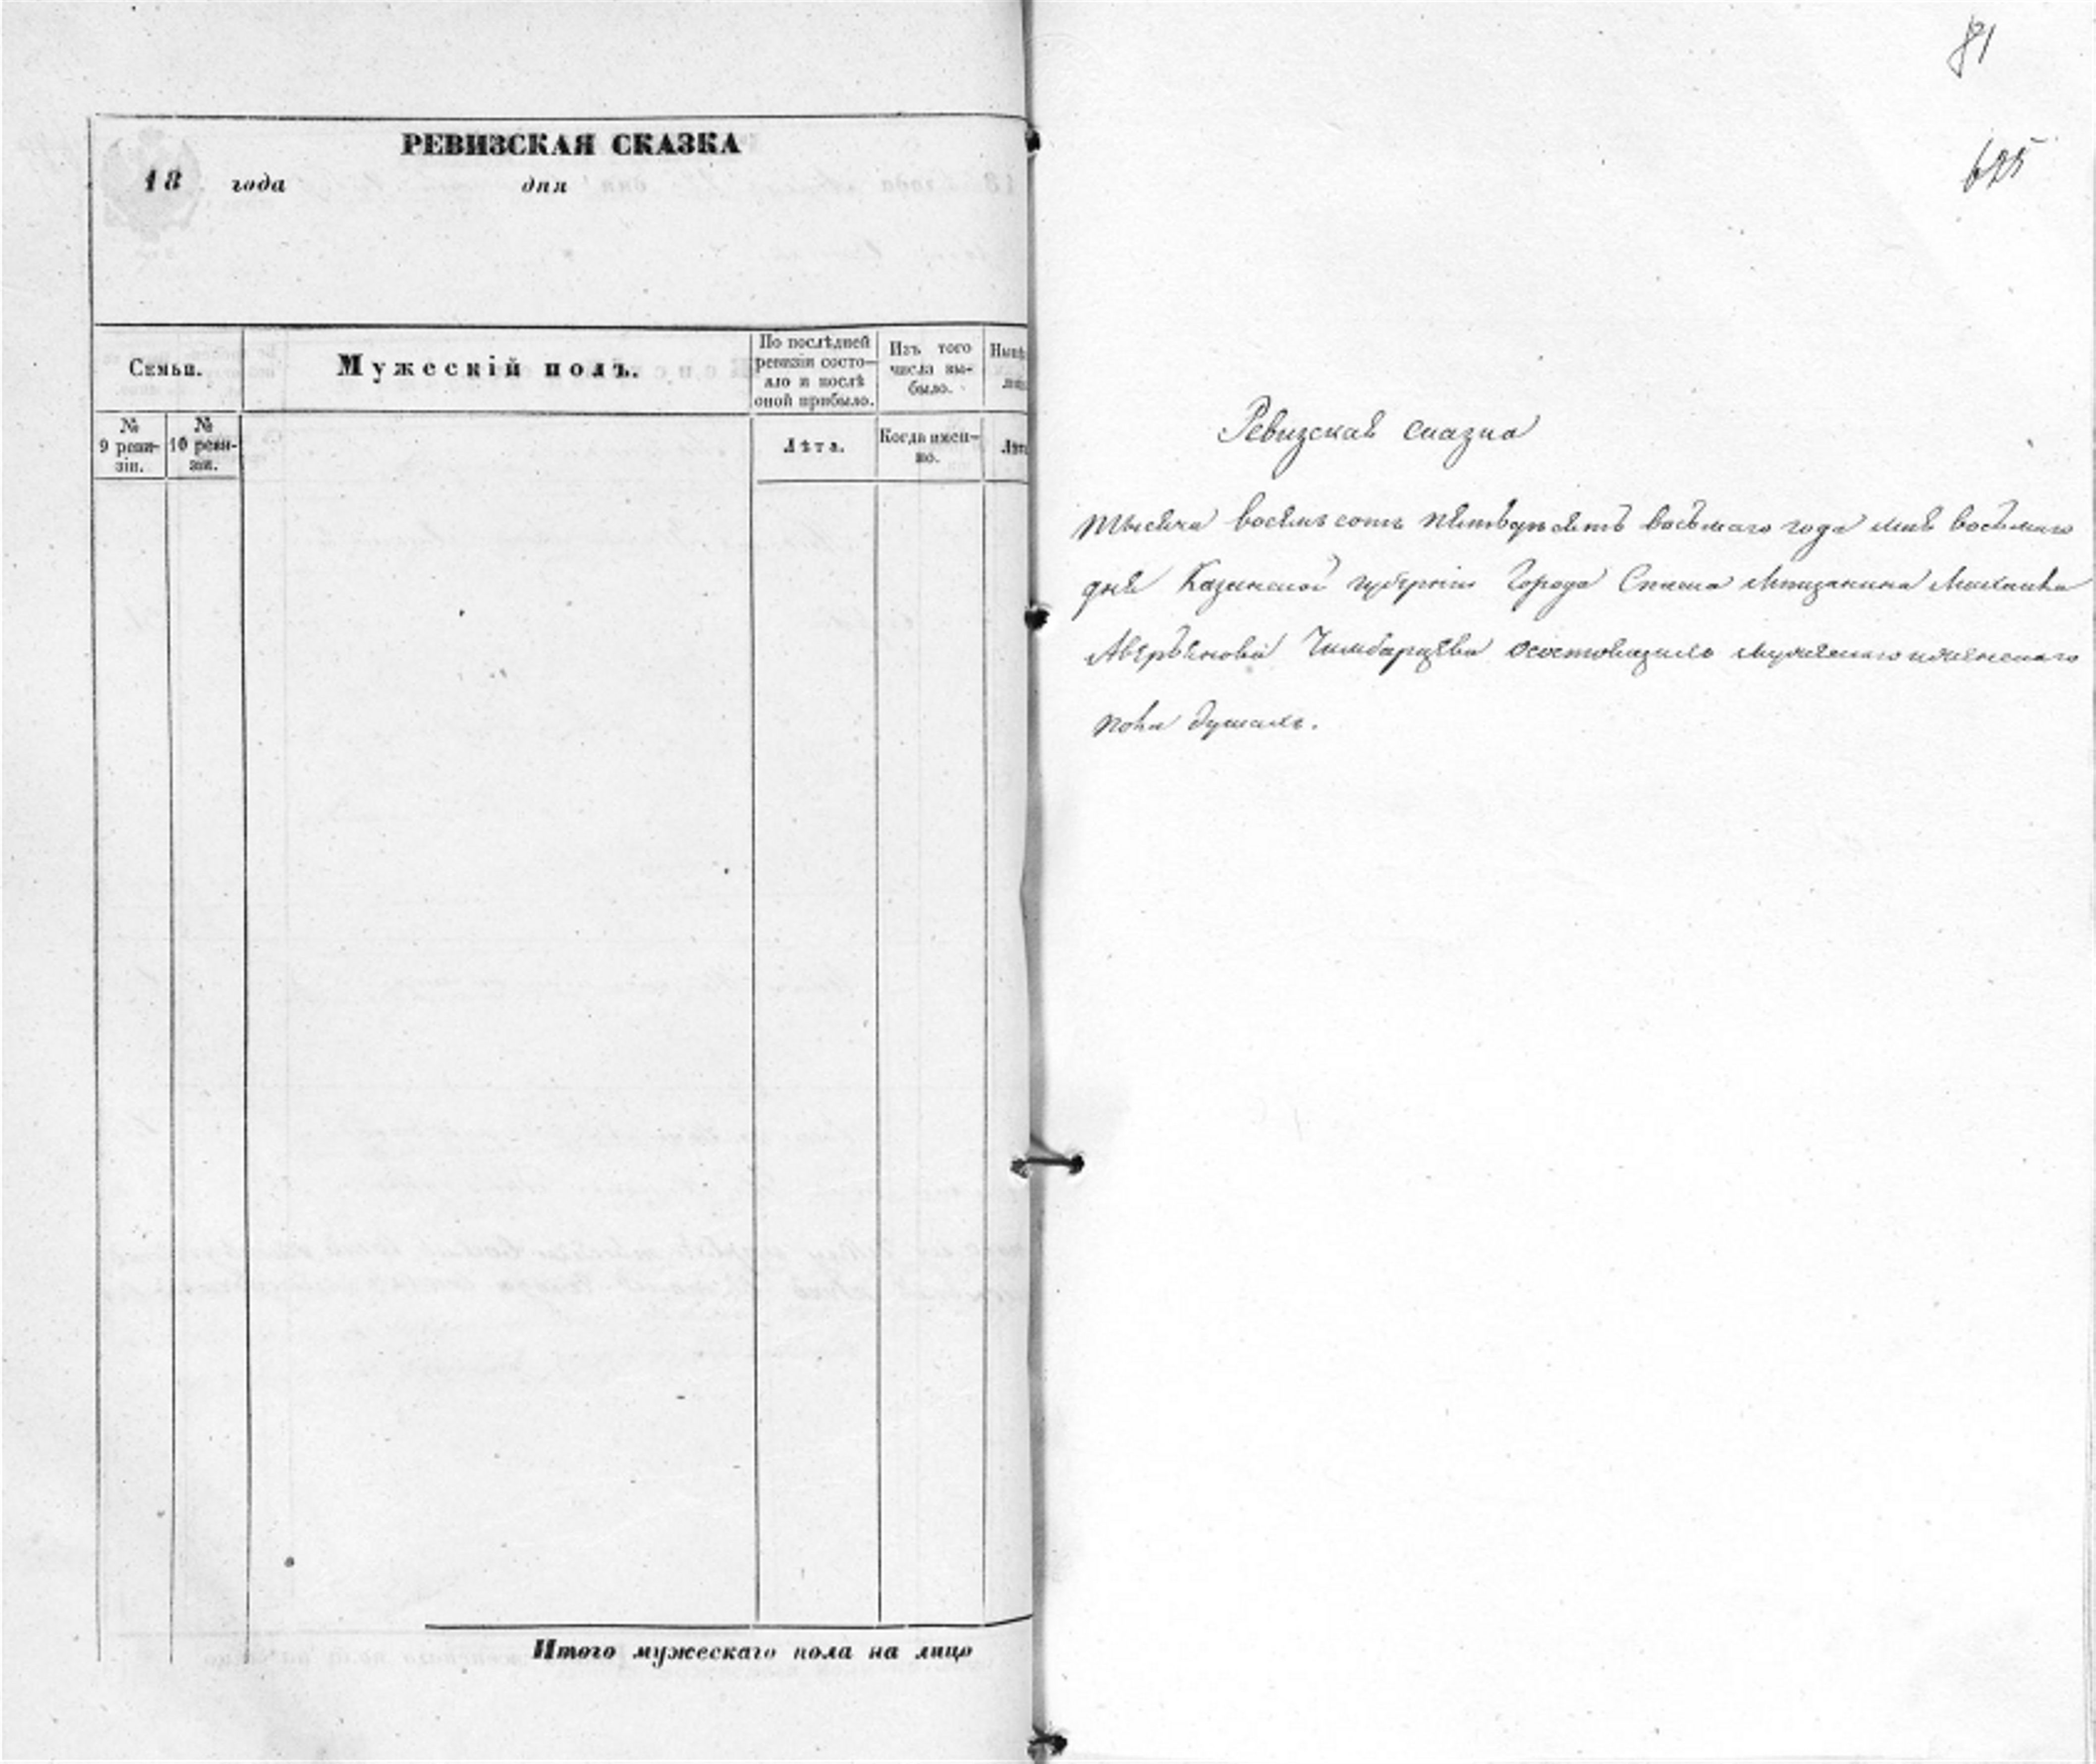 РЕВИЗСКАЯ СКАЗКА
18 года дня
Семьи.
Мужескій полъ.
По послѣдней ревизіи состояло и послѣ оной прибыло.
Изъ того числа выбыло.
№ 9 ревизіи.
№ 10 ревизіи.
Лѣта.
Когда именно.
Итого мужескаго пола на лицо
81
625
Ревизская сказка
тысяча восемь сотъ пятьдесятъ восьмаго года мая восьмаго
дня Казанской губерніи Города Спаска мѣщанина Михаила
Аверьянова Чимбарцева осостоящихъ мужескаго иженскаго
пола душахъ.